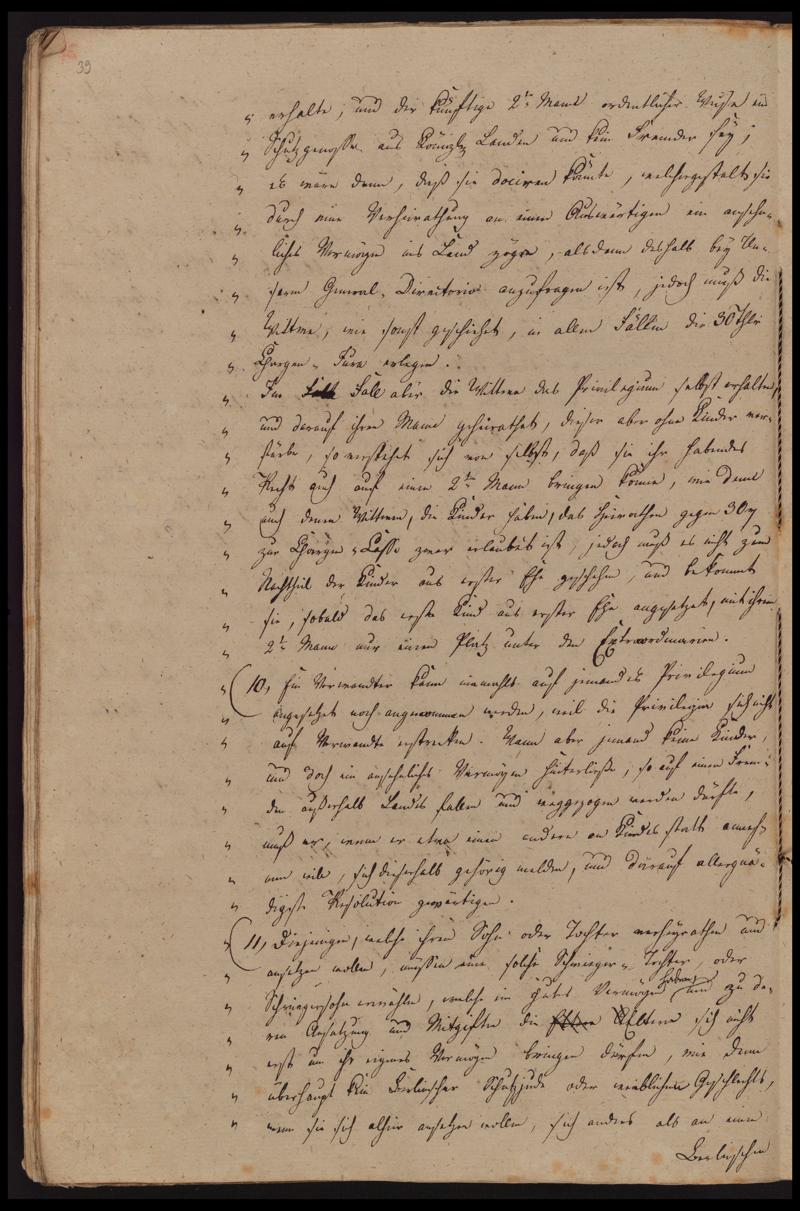 39
" erhalte, und der künftige 2te Mann ordentlicher Weise ein
" Schutzgenosse aus Königl. Landen und kein Fremder sey;
" es wäre denn, daß sie dociren könnte, welchergestalt sie
" durch eine Verheirathung an einen Auswärtigen ein ansehn-
" liches Vermögen ins Land zöge, alsdenn deshalb bey Un-
" serm General-Directorio anzufragen ist, jedoch muß die
" Wittwe, wie sonst geschiehet, in allen Fällen die 30 Thlr
" Chargen-Jura erlegen.
" Im Fall aber die Wittwe das Privilegium selbst erhalten,
" und darauf ihren Mann geheirathet, dieser aber ohne Kinder ver-
" stürbe, so verstehet sich von selbst, daß sie ihr habendes
" Recht auch auf einen 2ten Mann bringen könne, wie denn
" auch denen Wittwen, die Kinder haben, das Heirathen gegen 30
" zur Chargen-Casse zwar erlaubet ist, jedoch muß es nicht zum
" Nachtheil der Kinder aus erster Ehe geschehen, und bekommt
" sie, sobald das erste Kind aus erster Ehe angesetzet, mit ihrem
" 2ten Mann nur einen Platz unter den Extraordinarien.
" (10, Ein Verwandter kann niemahls auf jemandes Privilegium
" angesetzet noch angenommen werden, weil die Privilegia sich nicht
" auf Verwandte erstrecken. Wann aber jemand keine Kinder,
" und doch ein ansehnliches Vermögen hinterließe, so auf einen Frem-
" den außerhalb Landes fallen und weggezogen werden dürfte,
" muß er, wenn er etwa einen andern an Kindes statt anneh-
" men will, sich dieserhalb gehörig melden, und darauf allergnä-
" digste Resolution gewärtigen.
" (11, Diejenigen, welche ihren Sohn oder Tochter verheyrathen und
" ansetzen wollen, müssen eine solche Schwieger-Tochter, oder
" Schwiegersohn erwählen, welche ein gutes Vermögen haben, und zu de-
" ren Ansetzung und Mitgiften die Eltern sich nicht
" erst um ihr eigenes Vermögen bringen dürfen, wie denn
" überhaupt kein Berlinscher Schutzjude oder weiblichen Geschlechts,
" wenn sie sich alhier ansetzen wollen, sich anders als an einen
Berlinschen